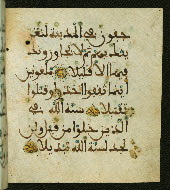 جفون في المدينة لنغر
ينك بهم ثم لا يجاورونك
فيها إلا قليلا ملعونين
أينما ثقفوا أخذوا وقتلوا
تقتيلا سنة الله في
الذين خلوا من قبل ولن
تجد لسنة الله تبديلا